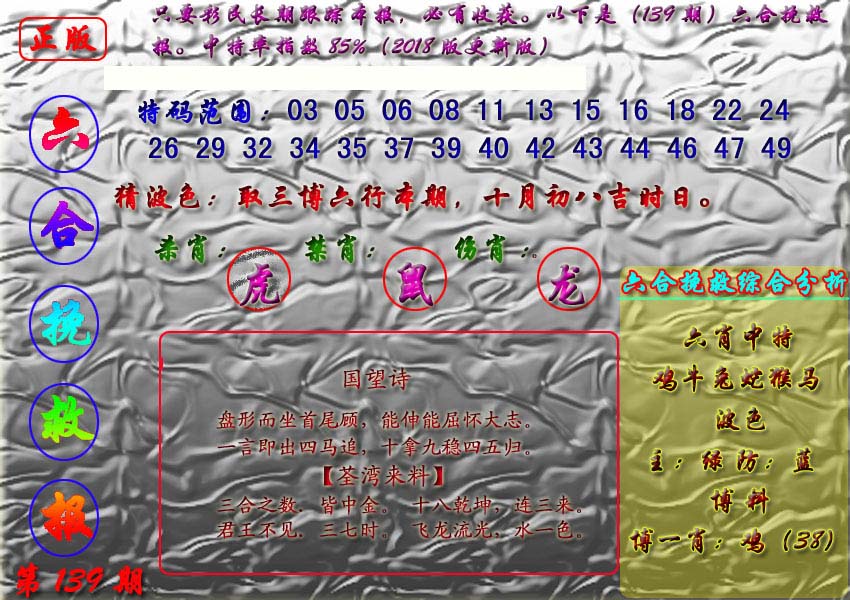 正版
只要彩民长期跟踪本报，必有收获。以下是（139期）六合挽救
报。中特率指数85%（2018版更新版）
六
合
挽
救
报
第139期
特码范围：03 05 06 08 11 13 15 16 18 22 24
26 29 32 34 35 37 39 40 42 43 44 46 47 49
猜波色：取三博六行本期，十月初八吉时日。
杀肖： 禁肖： 伤肖：。
虎 鼠 龙
国望诗
盘形而坐首尾顾，能伸能屈怀大志。
一言即出四马追，十拿九稳四五归。
【荃湾来料】
三合之数．皆中金。 十八乾坤，连三来。
君王不见．三七时。 飞龙流光，水一色。
六合挽救综合分析
六肖中特
鸡牛兔蛇猴马
波色
主：绿防：蓝
博料
博一肖：鸡（38）